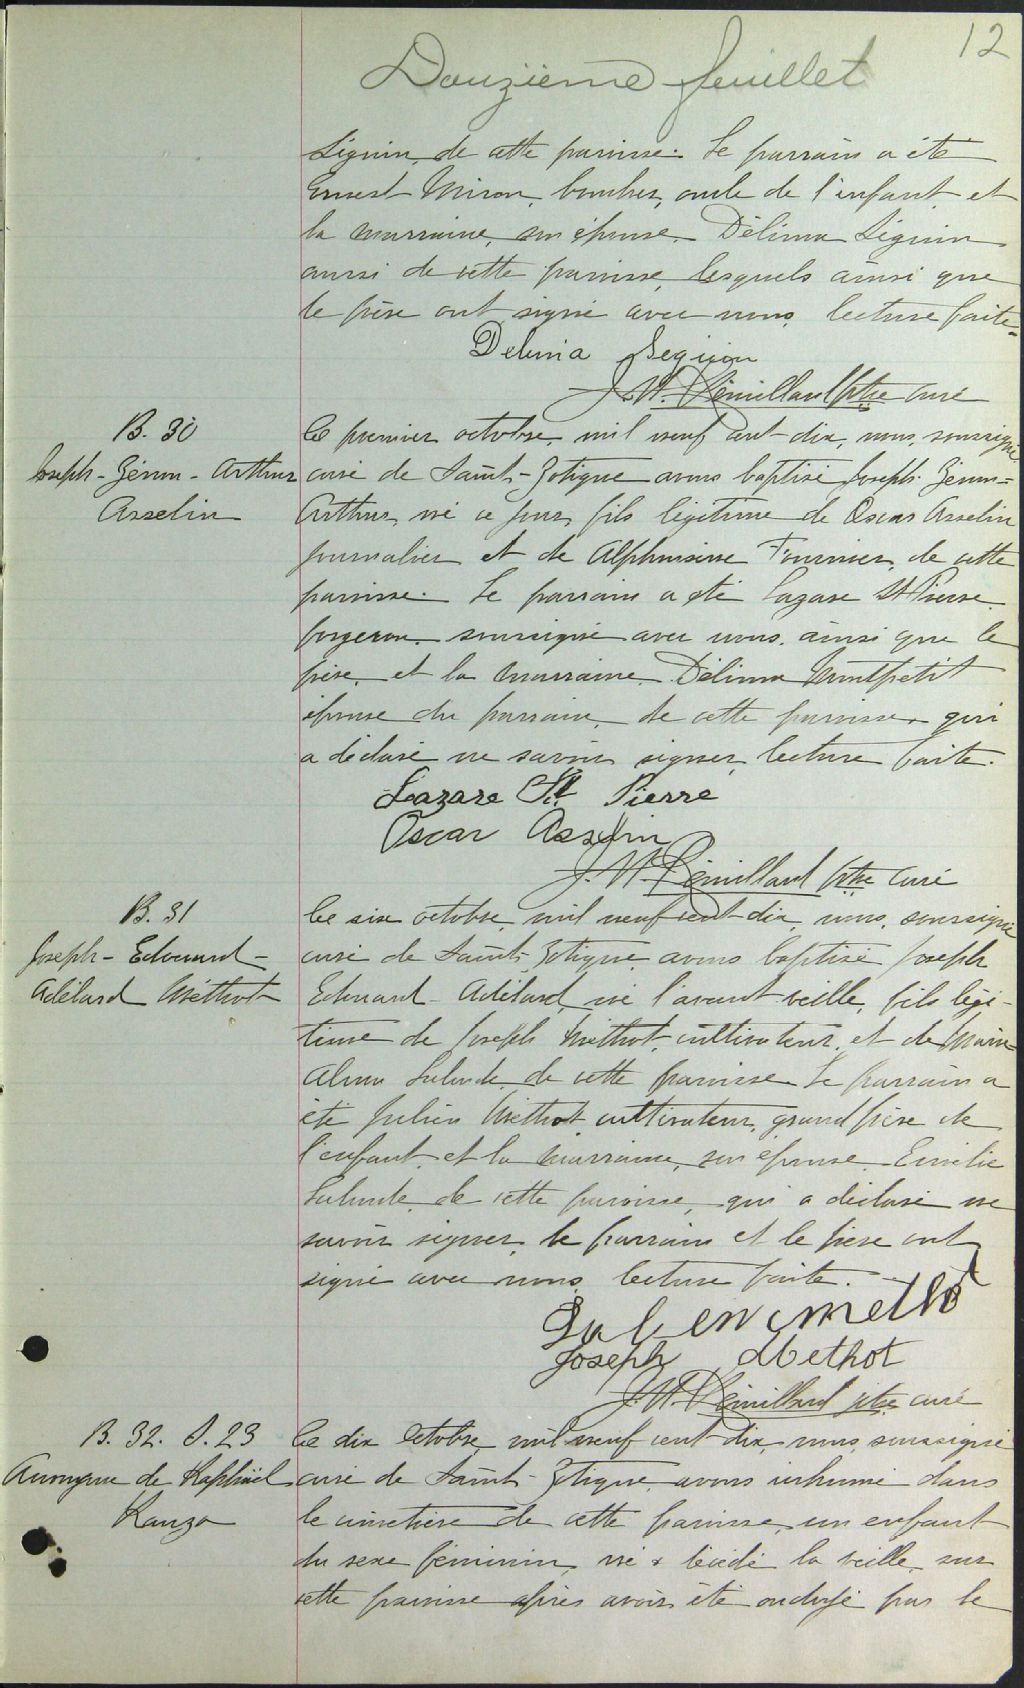 12
Douzième feuillet
Séguin, de cette paroisse. Le parrain a été
Ernest Miron, boucher, oncle de l'enfant et
la marraine, son épouse, Délima Séguin
aussi de cette paroisse, lesquels ainsi que
le père ont signé avec nous, lecture faite.
Delima Seguin
J. W. Rémillard ptre curé
B. 30
Joseph-Zénon-Arthur
Asselin
Le premier octobre, mil neuf cent-dix, nous, soussigné
curé de Saint-Zotique avons baptisé Joseph-Zénon-
Arthur, né ce jour, fils légitime de Oscar Asselin
journalier et de Alphonsine Fournier, de cette
paroisse. Le parrain a été Lazare St Pierre
forgeron, soussigné avec nous, ainsi que le
père, et la marraine Délima Montpetit
épouse du parrain, de cette paroisse, qui
a déclaré ne savoir signer, lecture faite.
Lazare St Pierre
Oscar Asselin
J. W. Rémillard ptre curé
B. 31
Joseph-Edouard-
Adélard Méthot
Le six octobre, mil neuf cent-dix, nous, soussigné
curé de Saint-Zotique, avons baptisé Joseph
Edouard-Adélard, né l'avant-veille, fils légi-
time de Joseph Méthot, cultivateur, et de Marie-
Alma Lalonde, de cette paroisse. Le parrain a
été Julien Méthot, cultivateur, grand père de
l'enfant, et la marraine, son épouse Emilie
Lalonde, de cette paroisse, qui a déclaré ne
savoir signer, le parrain et le père ont
signé avec nous, lecture faite.
Julien methot
Joseph Methot
J. W. Rémillard ptre curé
B. 32. S. 23
Anonyme de Raphaël
Ranzo
Le dix octobre, mil neuf cent-dix, nous, soussigné
curé de Saint-Zotique, avons inhumé dans
le cimetière de cette paroisse, un enfant
du sexe féminin, né & décédé la veille, sur
cette paroisse après avoir été ondoyé par le